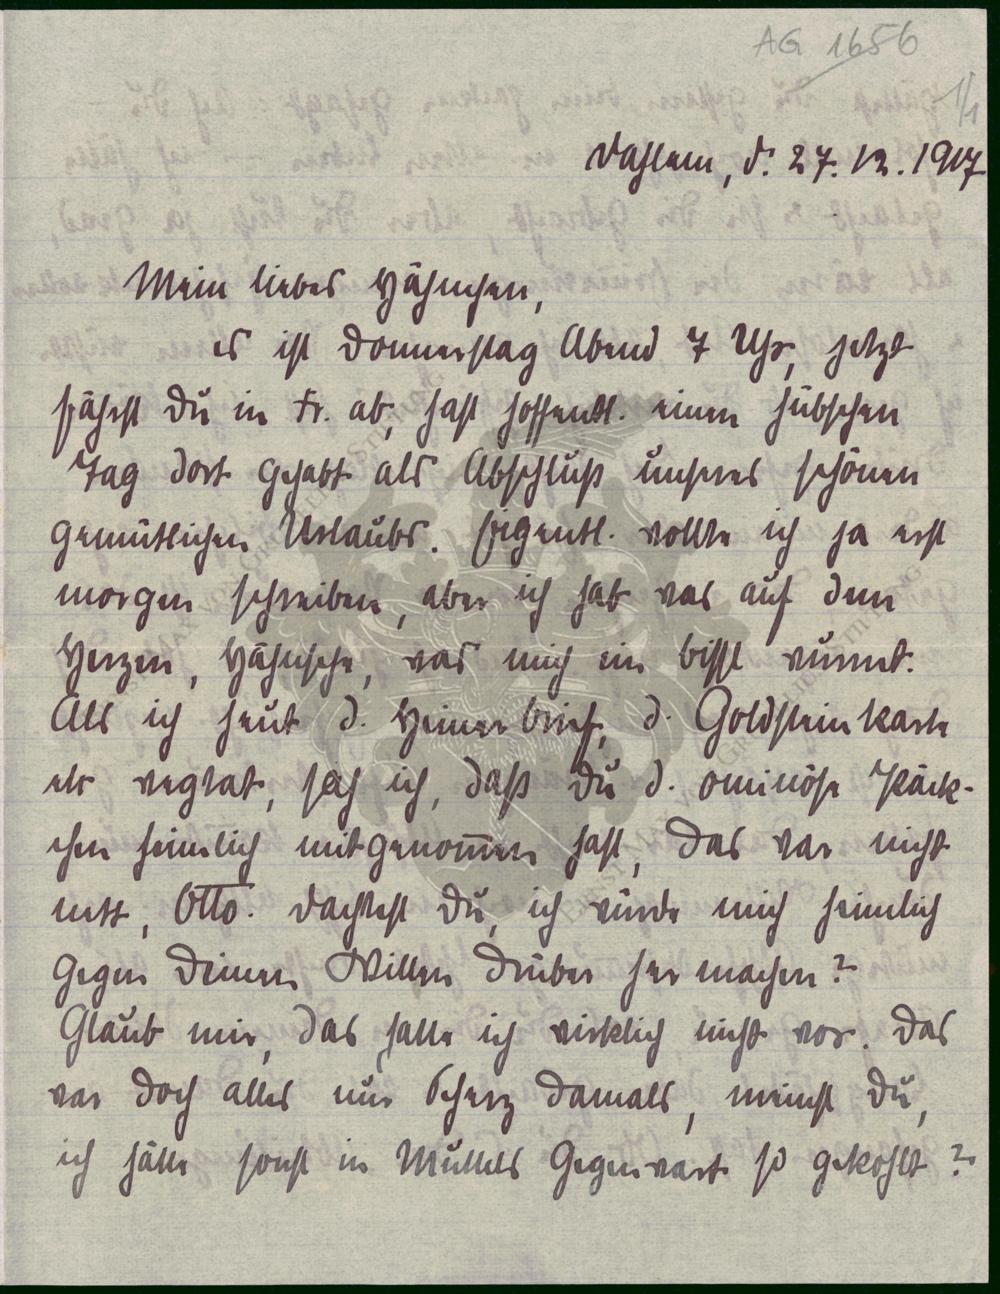 AG 1656
1/1
Dahlem, d. 27. 12. 1917
Mein liebes Hähnchen,
es ist Donnerstag Abend 7 Uhr, jetzt
fährst Du in Fr. ab, hast hoffentl. einen hübschen
Tag dort gehabt als Abschluß unsres schönen
gemütlichen Urlaubs. Eigentl. wollte ich ja erst
morgen schreiben, aber ich hab was auf dem
Herzen, Hähnsche, was mich ein bissl wurmt.
Als ich heut d. Heiner brief, d. Goldstein karte
etc wegtat, sah ich, daß Du d. ominöse Päck-
chen heimlich mitgenom̅en hast, das war nicht
nett, Otto. Dachtest Du, ich würde mich heimlich
gegen Deinen Willen drüber her machen?
Glaub mir, das hatte ich wirklich nicht vor. Das
war doch alles nur Scherz damals, meinst Du,
ich hätte sonst in Muttels Gegenwart so gekohlt?